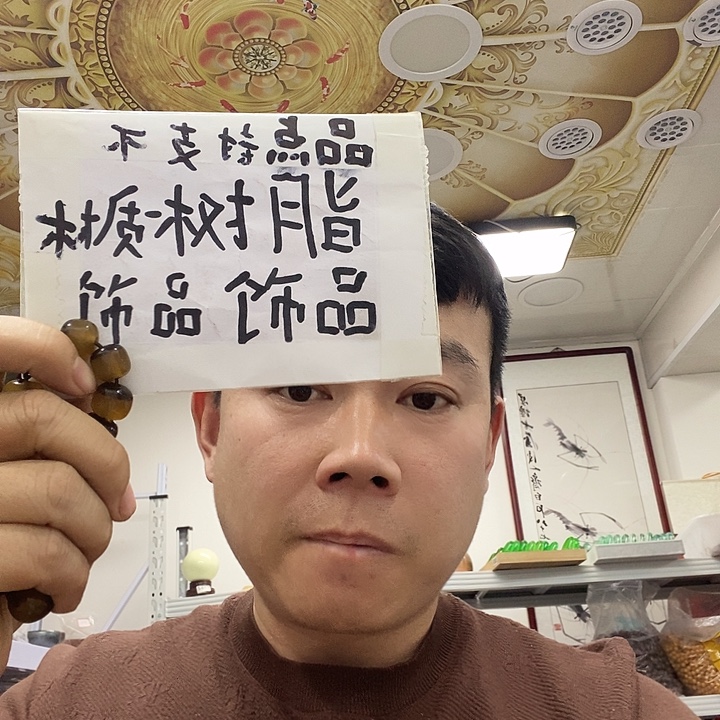 不支持点品
材质:树脂
饰品 饰品